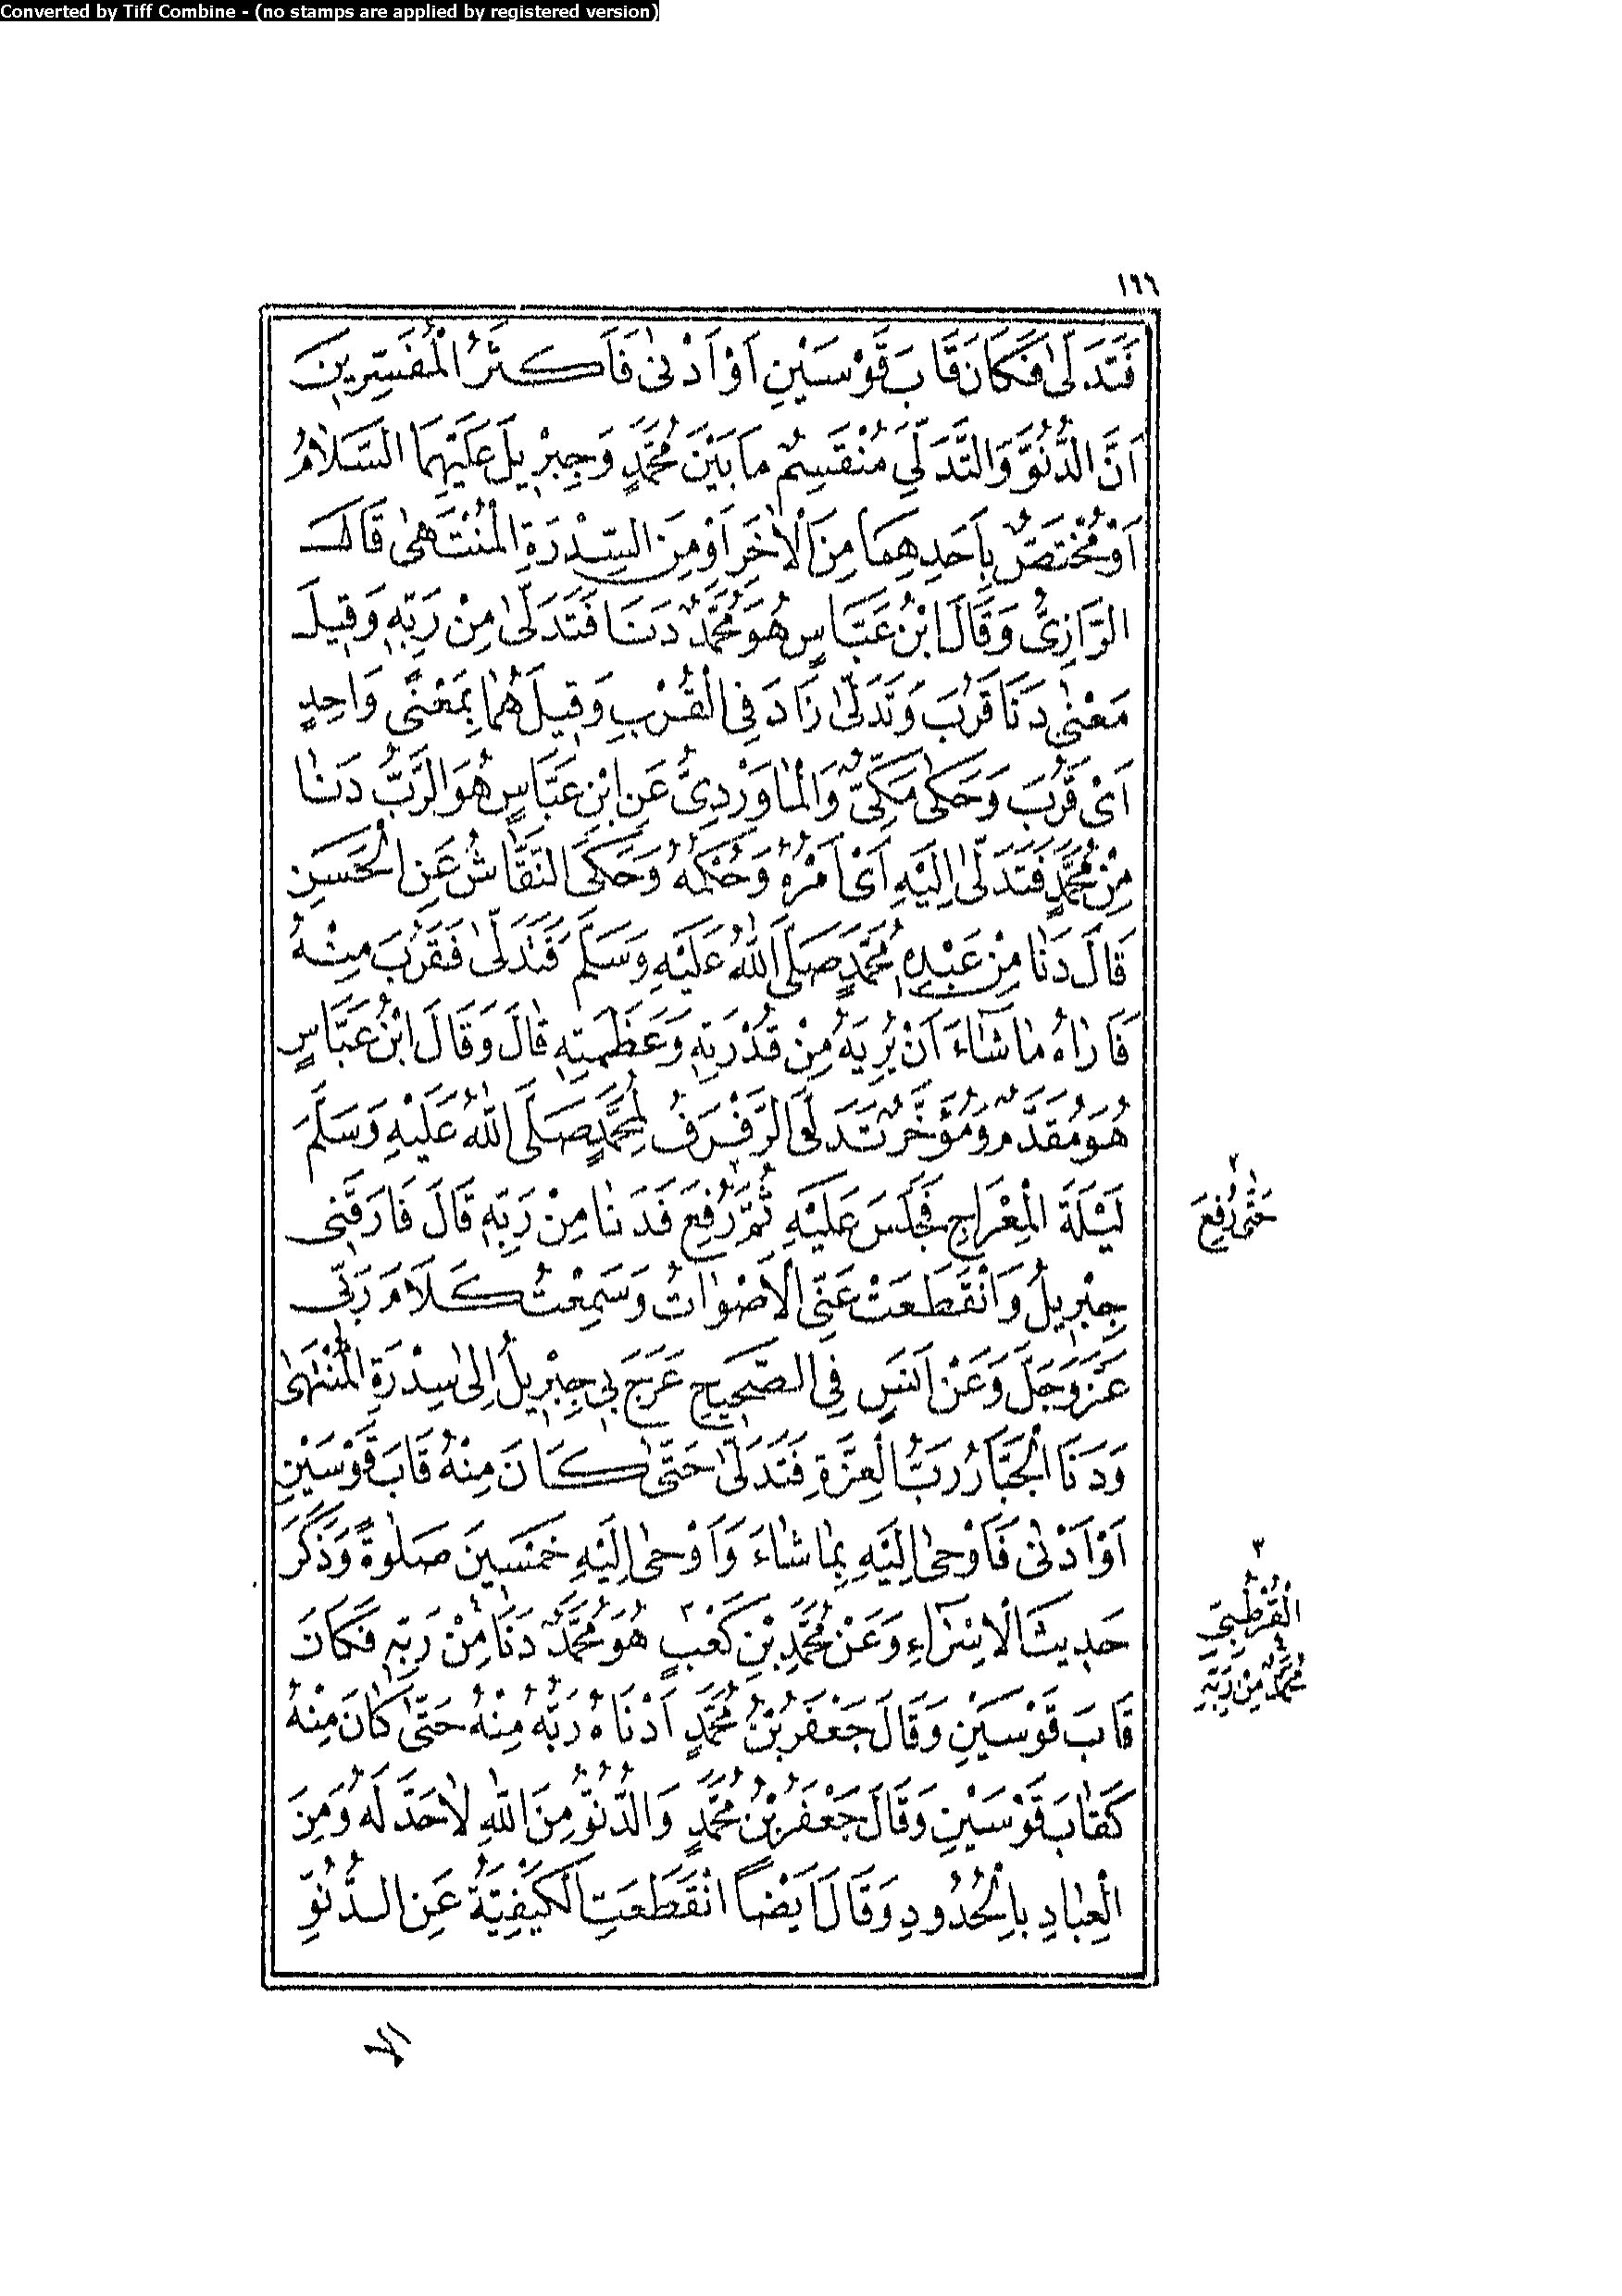 Converted by Tiff Combine - (no stamps are applied by registered version)
١٦٦
فَتَدَلّٰى فَكَانَ قَابَ قَوْسَيْنِ اَوْ اَدْنٰى فَاَكْثَرُ الْمُفَسِّرِينَ
اَنَّ الدُّنُوَّ وَالتَّدَلِّيَ مُنْقَسِمٌ مَا بَيْنَ مُحَمَّدٍ وَجِبْرِيلَ عَلَيْهِمَا السَّلَامُ
اَوْ مُخْتَصٌّ بِاَحَدِهِمَا مِنَ الْاٰخَرِ اَوْ مِنَ السِّدْرَةِ الْمُنْتَهٰى قَالَ
الرَّازِىُّ وَقَالَ ابْنُ عَبَّاسٍ هُوَ مُحَمَّدٌ دَنَا فَتَدَلّٰى مِنْ رَبِّهِ وَقِيلَ
مَعْنٰى دَنَا قَرُبَ وَتَدَلّٰى زَادَ فِى الْقُرْبِ وَقِيلَ هُمَا بِمَعْنًى وَاحِدٍ
اَىْ قَرُبَ وَحَكٰى مَكِّىٌّ وَالْمَاوَرْدِىُّ عَنِ ابْنِ عَبَّاسٍ هُوَ الرَّبُّ دَنَا
مِنْ مُحَمَّدٍ فَتَدَلّٰى اِلَيْهِ اَىْ اَمْرُهُ وَحُكْمُهُ وَحَكَى النَّقَّاشُ عَنِ الْحَسَنِ
قَالَ دَنَا مِنْ عَبْدِهِ مُحَمَّدٍ صَلَّى اللهُ عَلَيْهِ وَسَلَّمَ فَتَدَلّٰى فَقَرُبَ مِنْهُ
فَاَرَاهُ مَا شَاءَ اَنْ يُرِيَهُ مِنْ قُدْرَتِهِ وَعَظَمَتِهِ قَالَ وَقَالَ ابْنُ عَبَّاسٍ
هُوَ مُقَدَّمٌ وَمُؤَخَّرٌ تَدَلَّى الرَّفْرَفُ لِمُحَمَّدٍ صَلَّى اللهُ عَلَيْهِ وَسَلَّمَ
لَيْلَةَ الْمِعْرَاجِ فَجَلَسَ عَلَيْهِ ثُمَّ رُفِعَ فَدَنَا مِنْ رَبِّهِ قَالَ فَارَقَنِى
٢
حَتّٰى رُفِعَ
جِبْرِيلُ وَانْقَطَعَتْ عَنِّى الْاَصْوَاتُ وَسَمِعْتُ كَلَامَ رَبِّى
عَزَّ وَجَلَّ وَعَنْ اَنَسٍ فِى الصَّحِيحِ عَرَجَ بِى جِبْرِيلُ اِلٰى سِدْرَةِ الْمُنْتَهٰى
وَدَنَا الْجَبَّارُ رَبُّ الْعِزَّةِ فَتَدَلّٰى حَتّٰى كَانَ مِنْهُ قَابَ قَوْسَيْنِ
اَوْ اَدْنٰى فَاَوْحٰى اِلَيْهِ بِمَا شَاءَ وَاَوْحٰى اِلَيْهِ خَمْسِينَ صَلٰوةً وَذَكَرَ
حَدِيثَ الْاِسْرَاءِ وَعَنْ مُحَمَّدِ بْنِ كَعْبٍ ٣ هُوَ مُحَمَّدٌ دَنَا مِنْ رَبِّهِ فَكَانَ
٣
الْقُرَظِىِّ
٤
مُحَمَّدٌ مِنْ رَبِّهِ
قَابَ قَوْسَيْنِ وَقَالَ جَعْفَرُ بْنُ مُحَمَّدٍ اَدْنَاهُ رَبُّهُ مِنْهُ حَتّٰى كَانَ مِنْهُ
كَقَابَ قَوْسَيْنِ وَقَالَ جَعْفَرُ بْنُ مُحَمَّدٍ وَالدُّنُوُّ مِنَ اللهِ لَا حَدَّ لَهُ وَمِنَ
الْعِبَادِ بِالْحُدُودِ وَقَالَ اَيْضًا انْقَطَعَتِ الْكَيْفِيَّةُ عَنِ الدُّنُوِّ